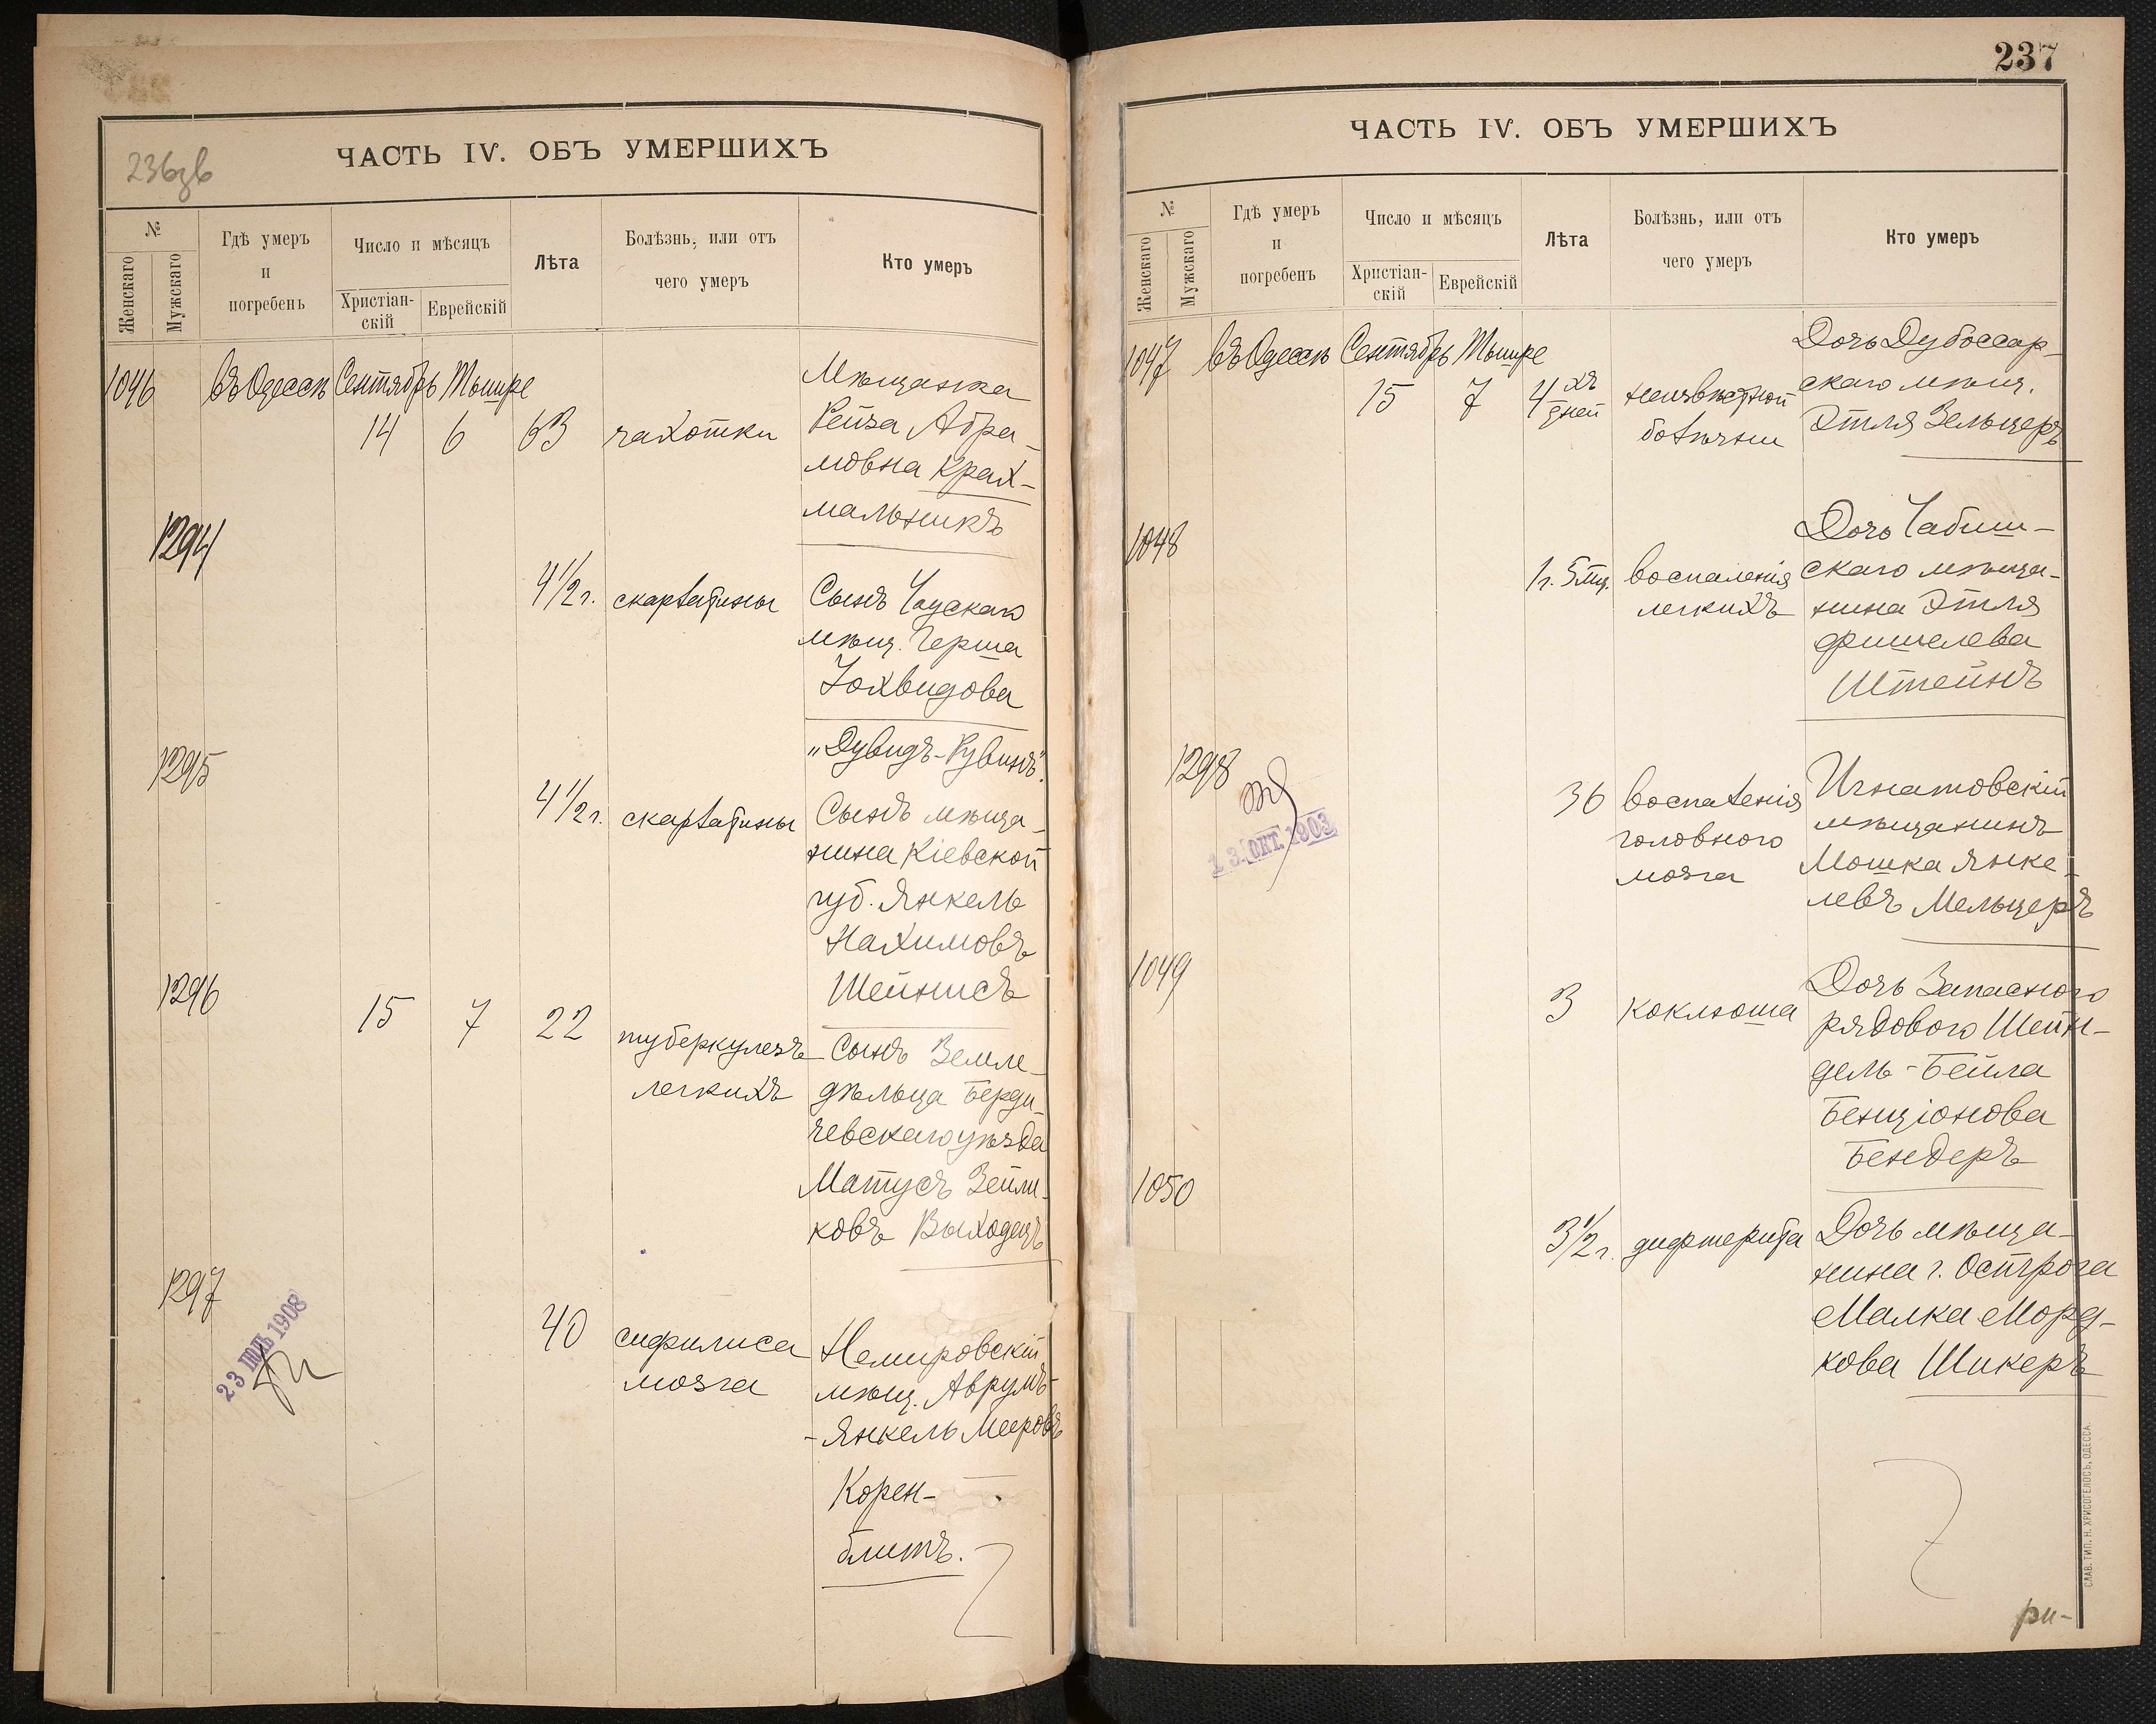 236 зв
ЧАСТЬ IV. ОБЪ УМЕРШИХЪ
№
Женскаго
Мужскаго
Гдѣ умеръ
и
погребенъ
Число и мѣсяцъ
Христіан-
скій
Еврейскій
Лѣта
Болѣзнь, или отъ
чего умеръ
Кто умеръ
1046 въ Одессѣ Сентябрь Тышре
14 6 63 чахотки
Мѣщанка
Рейза Абра-
мовна Крах-
мальникъ
1294
4 1/2 г. скарлатины
Сынъ Чаускаго
мѣщ. Герша
Іохвидова
"Дувидъ-Рувинъ".
1295
4 1/2 г. скарлатины
Сынъ мѣща-
нина Кіевской
губ. Янкель
Нахимовъ
Шейнисъ
1296
15 7 22 туберкулезъ
легкихъ
Сынъ Земле-
дѣльца Берди-
чевскаго уѣзда
Матусъ Зейли-
ковъ Выходецъ
1297
23 1908
40 сифилиса
мозга
Немировскій
мѣщ. Аврумъ-
-Янкель Мееровъ
Корен-
блитъ.
237
ЧАСТЬ IV. ОБЪ УМЕРШИХЪ
№
Женскаго
Мужскаго
Гдѣ умеръ
и
погребенъ
Число и мѣсяцъ
Христіан-
скій
Еврейскій
Лѣта
Болѣзнь, или отъ
чего умеръ
Кто умеръ
1047 въ Одессѣ Сентябрь Тышре
15 7 4хъ дней неизвѣстной
болѣзни
Дочь Дубоссар-
скаго мѣщ.
Этля Зельцеръ
1048
1 г. 5 мц. воспаленія
легкихъ
Дочь Чабиш-
скаго мѣща-
нина Этля
Фишелева
Штейнъ
1298
13 ОКТ. 1903
36 воспаленія
головного
мозга
Игнатовскій
мѣщанинъ
Мошка Янке-
левъ Мельцеръ
1049
3 коклюша
Дочь Запасного
рядового Шейн-
дель-Бейла
Бенціонова
Бендеръ
1050
3 1/2 г. дифтерита
Дочь мѣща-
нина г. Острога
Малка Морд-
кова Шикеръ
ри-
СЛАВ. ТИП. Н. ХРИСОГЕЛОСЪ, ОДЕССА.